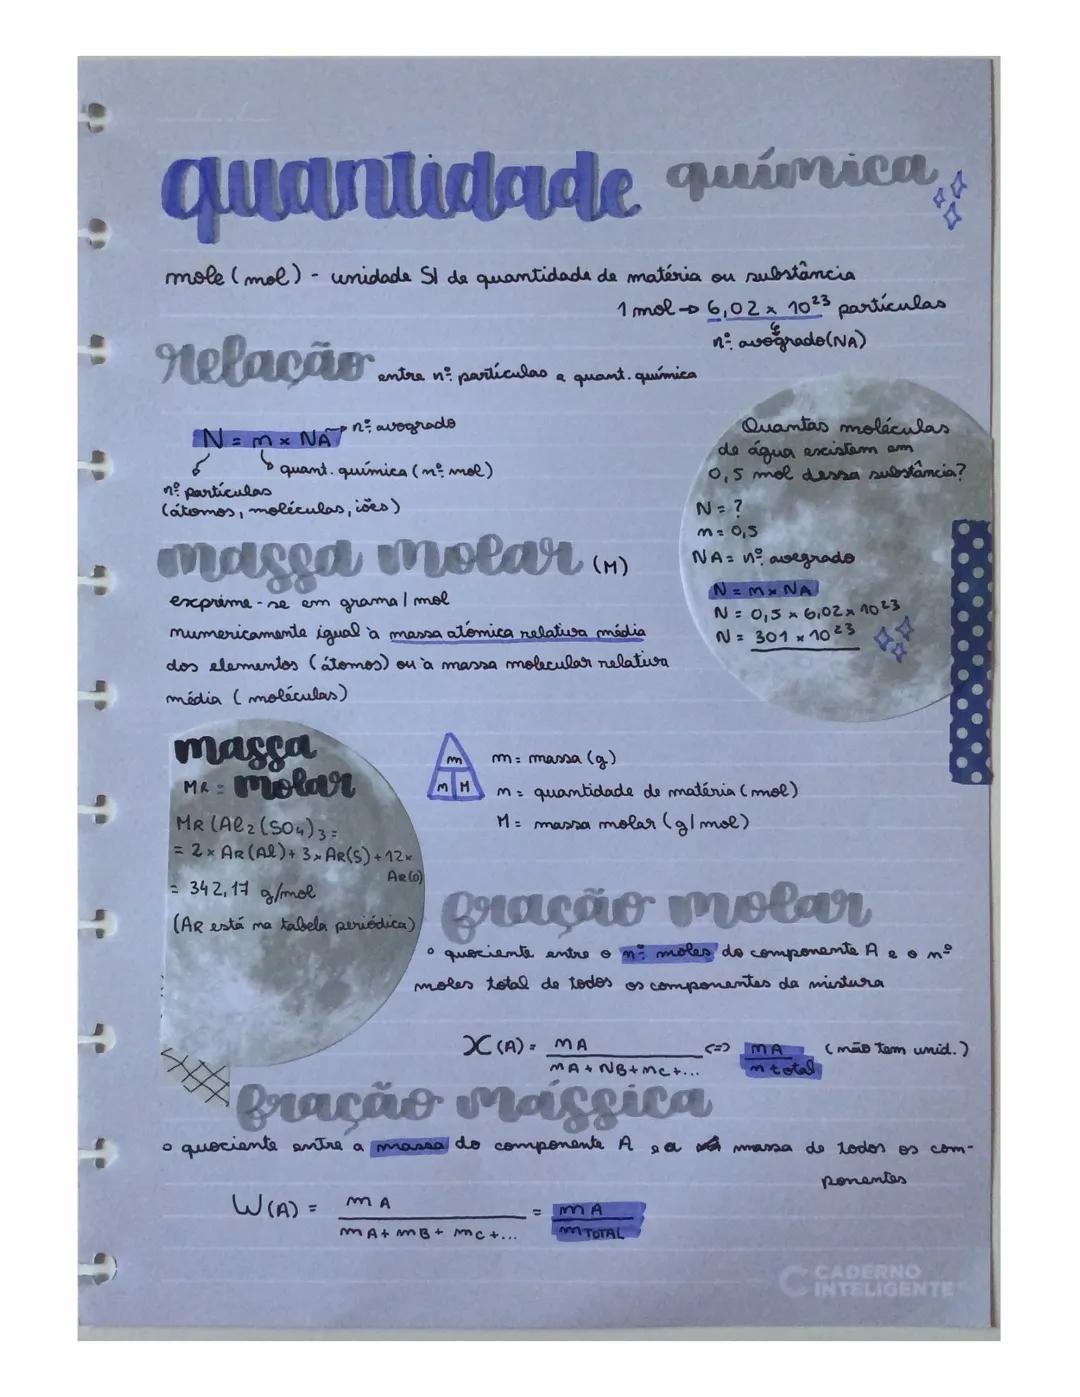 quantidade química
mole (mol) - unidade SI de quantidade de matéria ou substância
1 mol → 6,02 x 10²³ partículas
nº avogrado (NA)
relação entre nº partículas e quant. química
N = n x NA → nº avogrado
quant. química (nº mol)
nº partículas
(átomos, moléculas, iões)
Quantas moléculas
de água existem em
0,5 mol dessa substância?
N = ?
n = 0,5
NA = nº avogrado
N = n x NA
N = 0,5 x 6,02 x 10²³
N = 301 x 10²³
massa molar (M)
exprime-se em grama/mol
numericamente igual à massa atómica relativa média
dos elementos (átomos) ou à massa molecular relativa
média (moléculas)
massa
MR = molar
MR (Al₂(SO₄)₃ =
= 2 x AR(Al) + 3 x AR(S) + 12 x
AR(O)
= 342,17 g/mol
(AR está na tabela periódica)
m
n M
m = massa (g)
n = quantidade de matéria (mol)
M = massa molar (g/mol)
fração molar
° quociente entre o nº moles do componente A e o nº
moles total de todos os componentes da mistura
X(A) = nA <=> nA (não tem unid.)
nA + NB + nc + ... n total
fração mássica
° quociente entre a massa do componente A e a massa de todos os com-
ponentes
W(A) = m A = m A
mA + mB + mc + ... m TOTAL
CADERNO
INTELIGENTE